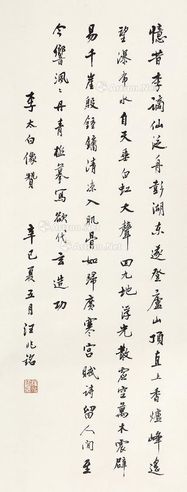 憶昔李謫仙泛舟彭湖東遂登廬山頂直上香爐峰遠
望瀑布水自天垂白虹大聲回九地浮光散虛空萬木震辟
易千崖殷鐘鏞清涼入肌骨如歸廣寒宮賦詩留人間至
今響渢〻丹青極摹寫欲代玄造功
李太白像贊 辛巳夏五月 汪兆銘